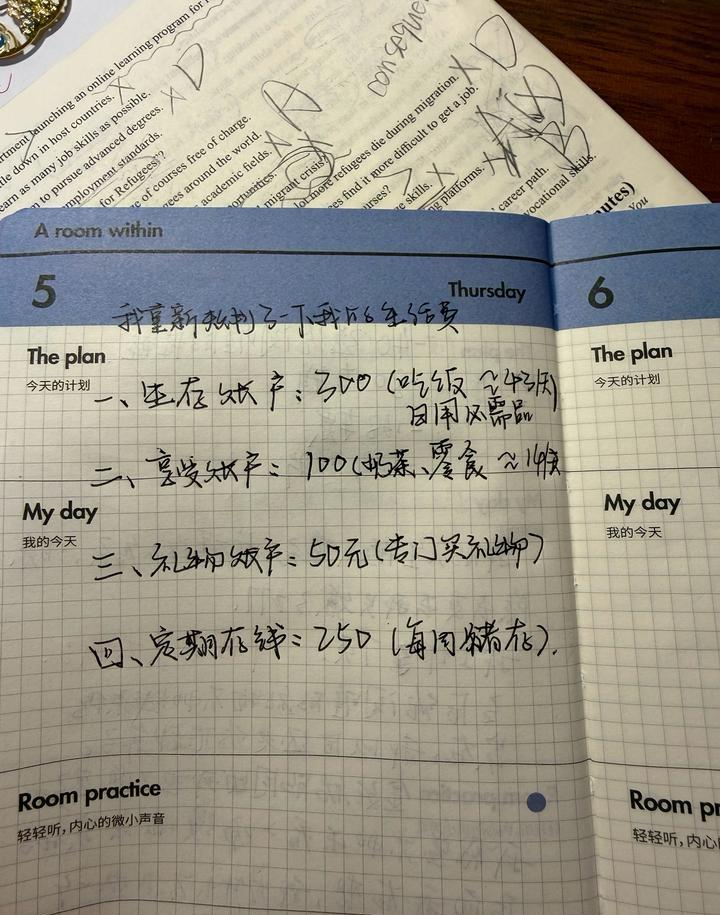 rtment launching an online learning program for
tle down in host countries. ×
earn as many job skills as possible. × D
n to pursue advanced degrees.
mployment standards.
for Refugees"?
e of courses free of charge. A
ees around the world.
academic fields. ×
portunities.
migrant crisis?
conseque
lot more refugees die during migration. × D
es find it more difficult to get a job.
urses?
ge skills. ×
ng platforms. ×
career path.
vocational skills.
nutes)
You
A room within
5
Thursday
我重新规划了一下我的生活费
The plan
今天的计划
一、生存账户：300（吃饭 ≈43/天）
日用必需品
二、享受账户：100（奶茶、零食 ≈14/天
My day
我的今天
三、礼物账户：50元（专门买礼物）
四、定期存钱：250（每周储存）.
Room practice
轻轻听，内心的微小声音
6
The plan
今天的计划
My day
我的今天
Room pr
轻轻听，内心